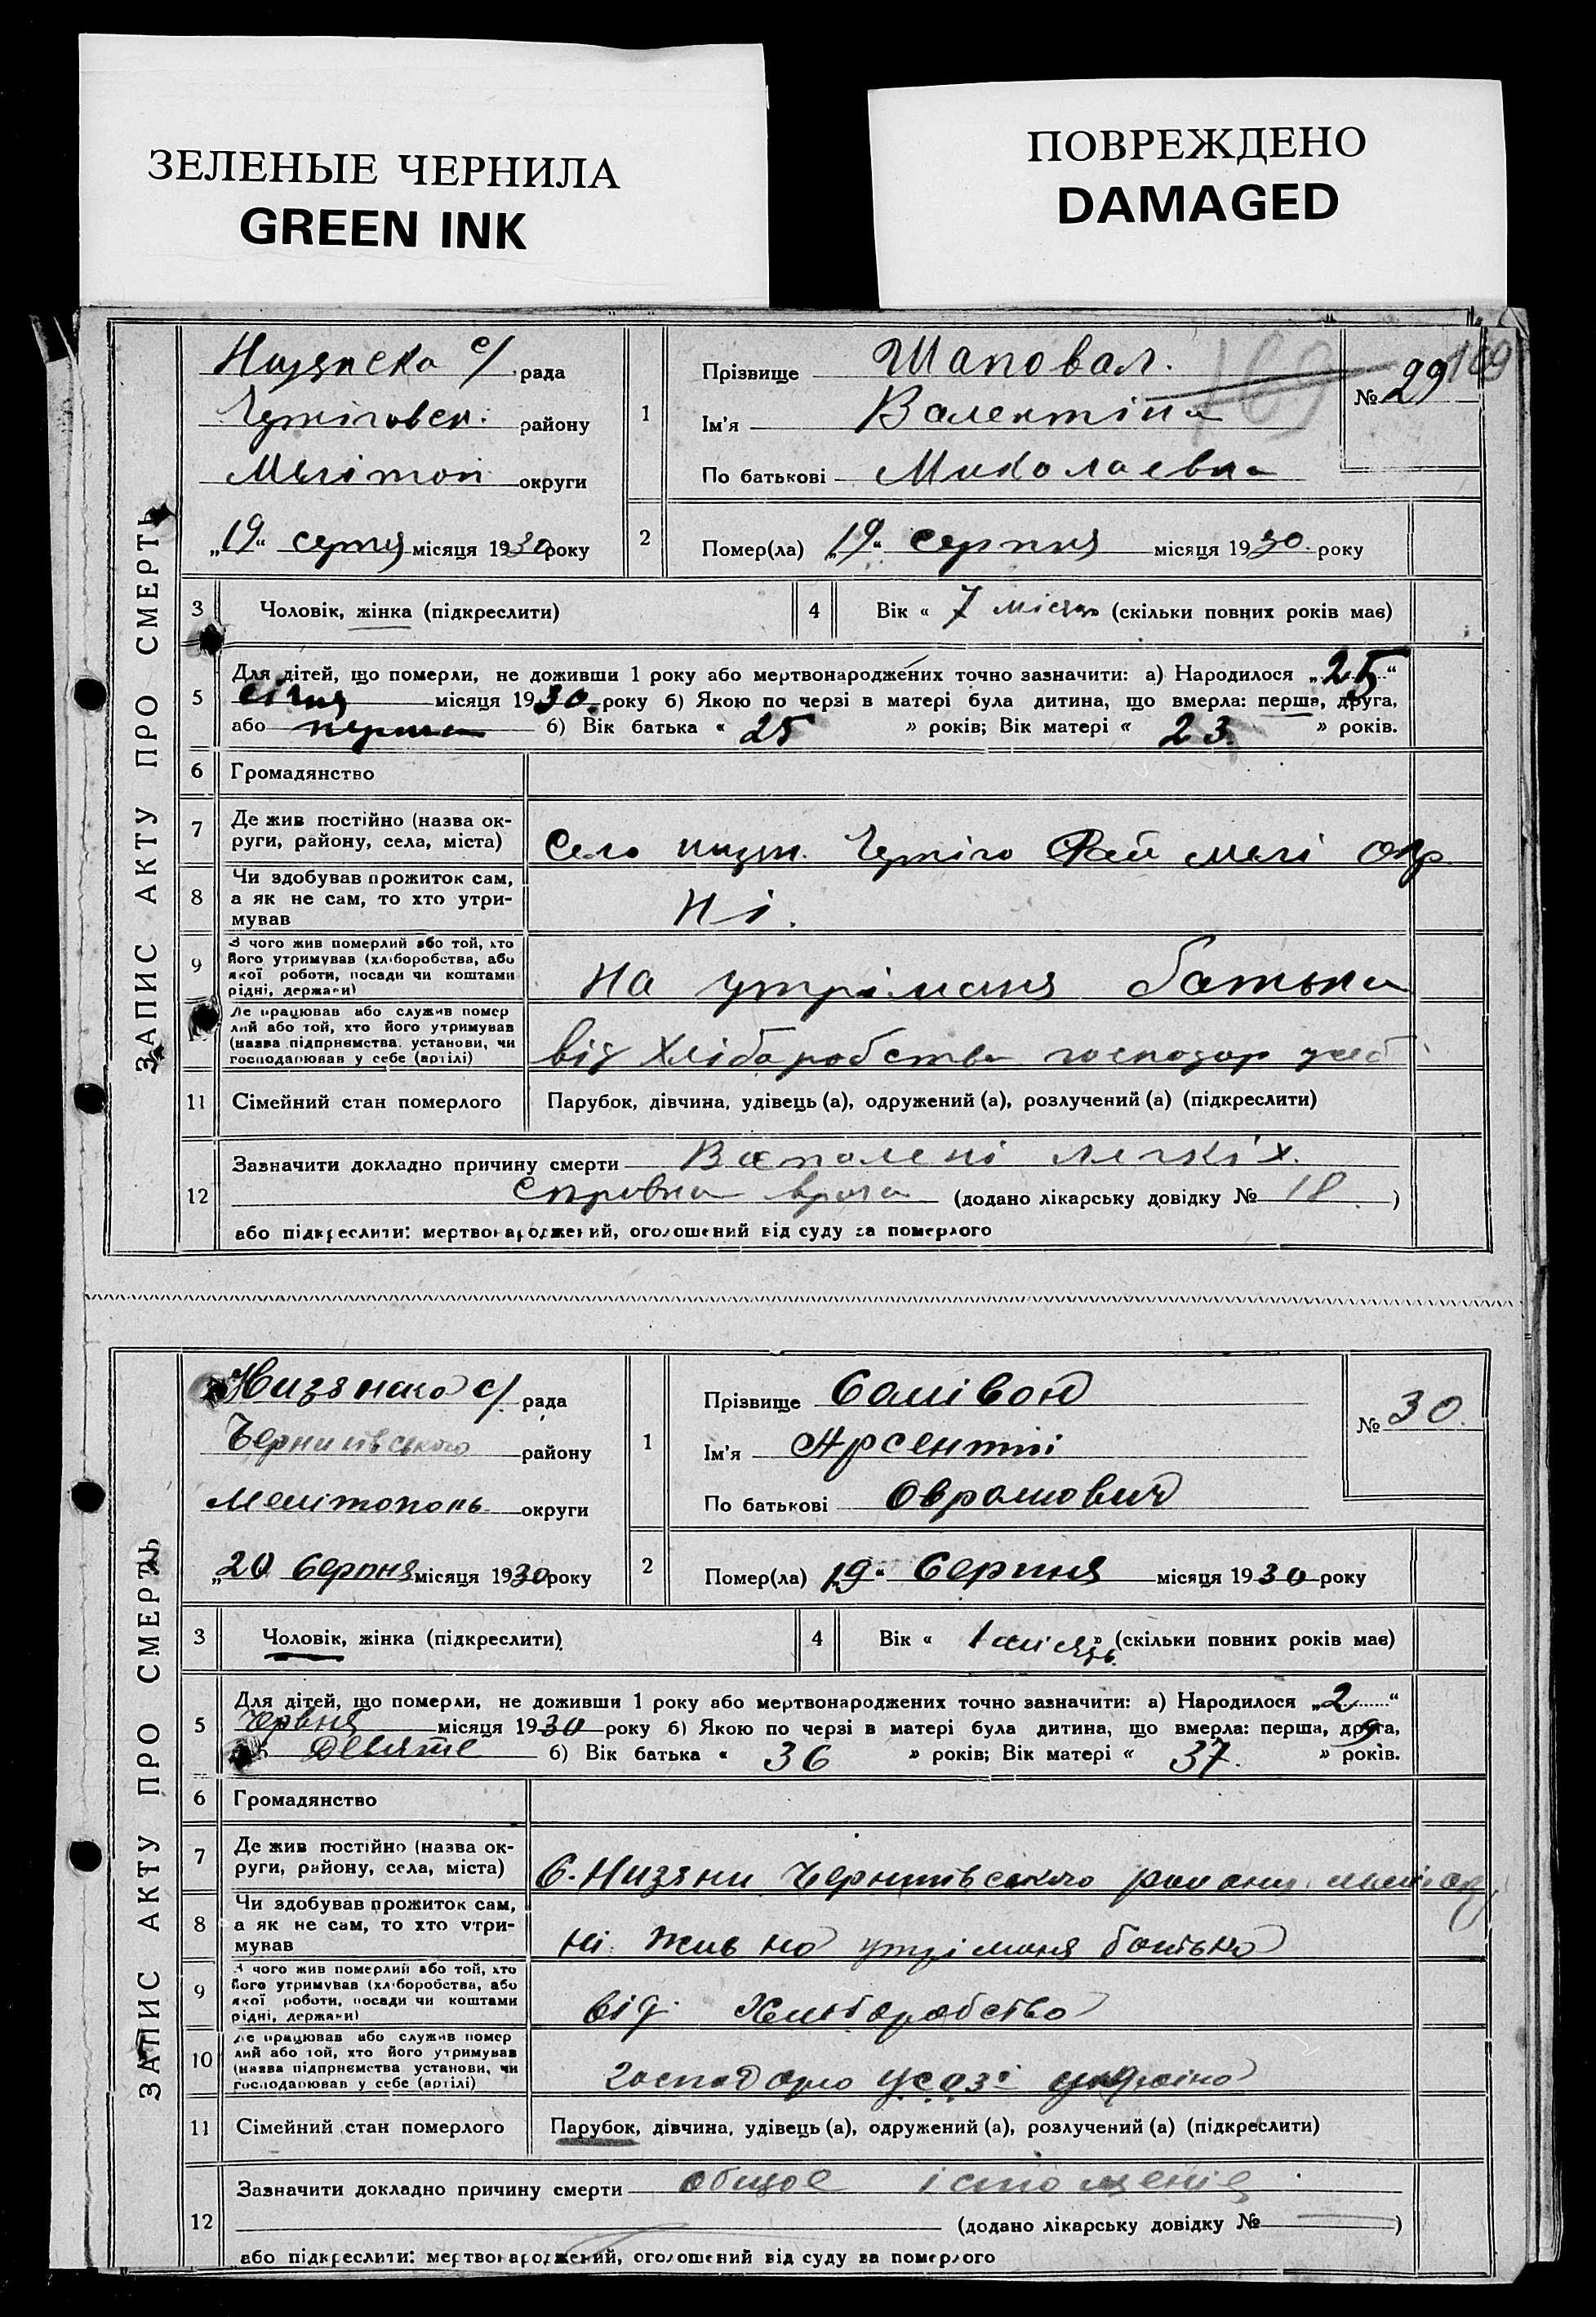 ЗЕЛЕНЫЕ ЧЕРНИЛА
GREEN INK
ПОВРЕЖДЕНО
DAMAGED
ЗАПИС АКТУ ПРО СМЕРТЬ
с/ рада
району
округи
"19" серпня місяця 1930 року
1
Прізвище Шаповал.
Ім'я Валентіна
По батькові Миколаевна
№ 29
169
169
2
Помер(ла) "19" серпня місяця 1930. року
3
Чоловік, жінка (підкреслити)
4
Вік « 7 місяц » (скільки повних років має)
5
Для дітей, що померли, не доживши 1 року або мертвонароджених точно зазначити: а) Народилося „25“
січня місяця 1930. року б) Якою по черзі в матері була дитина, що вмерла: перша, друга,
або перша б) Вік батька « 25 » років; Вік матері « 23. » років.
6
Громадянство
7
Де жив постійно (назва ок-
руги, району, села, міста)
Село
8
Чи здобував прожиток сам,
а як не сам, то хто утри-
мував
Ні.
9
З чого жив померлий або той, хто
його утримував (хліборобства, або
якої роботи, посади чи коштами
рідні, держави)
На утріманя батька
Де працював або служив помер
лий або той, хто його утримував
(назва підприємства установи, чи
господарював у себе (артілі)
від Хліборобства господар
11
Сімейний стан померлого
Парубок, дівчина, удівець (а), одружений (а), розлучений (а) (підкреслити)
12
Зазначити докладно причину смерти Воспалені легкіх.
справка врача (додано лікарську довідку № 18 )
або підкреслити: мертвонароджений, оголошений від суду за померлого
ЗАПИС АКТУ ПРО СМЕРТЬ
Низянска с/ рада
Чернигівського району
Мелітополь округи
„20 Серпня місяця 1930 року
1
Прізвище Салівон
Ім'я Арсентій
По батькові Оврамович
№ 30.
2
Помер(ла) „19“ Серпня місяця 1930 року
3
Чоловік, жінка (підкреслити)
4
Вік « 1 місяць » (скільки повних років має)
5
Для дітей, що померли, не доживши 1 року або мертвонароджених точно зазначити: а) Народилося „2“
Червня місяця 1930 року б) Якою по черзі в матері була дитина, що вмерла: перша, друга,
девяте б) Вік батька « 36 » років; Вік матері « 37. » років.
6
Громадянство
7
Де жив постійно (назва ок-
руги, району, села, міста)
С. Низяни Чернигівського району
8
Чи здобував прожиток сам,
а як не сам, то хто утри-
мував
ні. жив на утріманя батька
9
З чого жив померлий або той, хто
його утримував (хліборобства, або
якої роботи, посади чи коштами
рідні, держави)
від Хліборобства
10
Де працював або служив помер
лий або той, хто його утримував
(назва підприємства установи, чи
господарював у себе (артілі)
11
Сімейний стан померлого
Парубок, дівчина, удівець (а), одружений (а), розлучений (а) (підкреслити)
12
Зазначити докладно причину смерти общое істощеніе
(додано лікарську довідку № )
або підкреслити: мертвонароджений, оголошений від суду за померлого